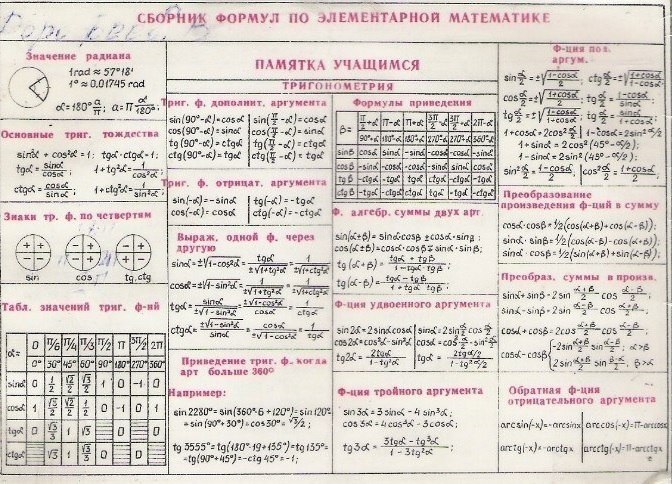 СБОРНИК ФОРМУЛ ПО ЭЛЕМЕНТАРНОЙ МАТЕМАТИКЕ
ПАМЯТКА УЧАЩИМСЯ
ТРИГОНОМЕТРИЯ
Значение радиана
1 rad ≈ 57°18'
1° ≈ 0,01745 rad
α=180° a/π ; a=π α/180° ;
Основные триг. тождества
sin²α + cos²α = 1; tgα·ctgα=1;
tgα = sinα/cosα ; 1+tg²α = 1/cos²α ;
ctgα = cosα/sinα ; 1+ctg²α = 1/sin²α ;
Знаки тр. ф. по четвертям
+ + - - - + + -
- - - + + -
sin cos tg, ctg
Табл. значений триг. ф-ий
α= 0 π/6 π/4 π/3 π/2 π 3π/2 2π
0° 30° 45° 60° 90° 180° 270° 360°
sinα 0 1/2 √2/2 √3/2 1 0 -1 0
cosα 1 √3/2 √2/2 1/2 0 -1 0 1
tgα 0 √3/3 1 √3 0 0
ctgα √3 1 √3/3 0 0
Триг. ф. дополнит. аргумента
sin(90°-α)=cosα sin(π/2-α)=cosα
cos(90°-α)=sinα cos(π/2-α)=sinα
tg(90°-α)=ctgα tg(π/2-α)=ctgα
ctg(90°-α)=tgα ctg(π/2-α)=tgα
Триг. ф. отрицат. аргумента
sin(-α)=-sinα tg(-α)=-tgα
cos(-α)=cosα ctg(-α)=-ctgα
Выраж. одной ф. через
другую
sinα=±√1-cos²α = tgα/±√1+tg²α = 1/±√1+ctg²α
cosα=±√1-sin²α = 1/±√1+tg²α = ctgα/±√1+ctg²α
tgα= sinα/±√1-sin²α = ±√1-cos²α/cosα = 1/ctgα
ctgα= ±√1-sin²α/sinα = cosα/±√1-cos²α = 1/tgα
Приведение триг. ф. когда
арг больше 360°
Например:
sin 2280°=sin(360°·6+120°)=sin120°
=sin(90°+30°)=cos30°=√3/2;
tg 3555°=tg(180°·19+135°)=tg135°=
=tg(90°+45°)=-ctg 45°=-1;
Формулы приведения
β= π/2+α π-α π+α 3π/2-α 3π/2+α 2π-α
90°+α 180°-α 180°+α 270°-α 270°+α 360°-α
sinβ cosα sinα -sinα -cosα -cosα -sinα
cosβ -sinα -cosα -cosα -sinα sinα cosα
tgβ -ctgα -tgα tgα ctgα -ctgα -tgα
ctgβ -tgα -ctgα ctgα tgα -tgα -ctgα
Ф. алгебр. суммы двух арг.
tg(α+β)= tgα+tgβ/1-tgα·tgβ ;
tg(α-β)= tgα-tgβ/1+tgα·tgβ ;
Ф-ция удвоенного аргумента
sin2α=2sinα cosα
tg2α= 2tgα/1-tg²α ;
Ф-ция тройного аргумента
sin3α=3sinα-4sin³α;
cos3α=4cos³α-3cosα;
tg3α= 3tgα-tg³α/1-3tg²α
Ф-ция пол.
аргум.
sin α/2=±√1-cosα/2 ; ctg α/2=±√1+cosα/1-cosα
cos α/2=±√1+cosα/2 ; tg α/2= 1-cosα/sinα
1+cosα=2cos² α/2 1-cosα=2sin² α/2 ;
1+sinα=2cos²(45°-α/2);
1-sinα=2sin²(45°-α/2);
sin² α/2= 1-cosα/2 cos² α/2= 1+cosα/2
Преобразование
произведения ф-ций в сумму
cosα·cosβ=1/2(cos(α+β)+cos(α-β));
sinα·sinβ=1/2(cos(α-β)-cos(α+β));
sinα·cosβ=1/2(sin(α+β)+sin(α-β));
Преобраз. суммы в произв.
sinα+sinβ=2sin α+β/2 cos α-β/2
sinα-sinβ=2sin α-β/2 cos α+β/2 ;
cosα+cosβ=2cos α+β/2 cos α-β/2
cosα-cosβ -2sin α+β/2 sin α-β/2, α>β
2sin α+β/2 sin β-α/2, β>α
Обратная ф-ция
отрицательного аргумента
arcsin(-x)=-arcsinx arccos(-x)=π-arccosx
arctg(-x)=-arctgx arcctg(-x)=π-arcctgx